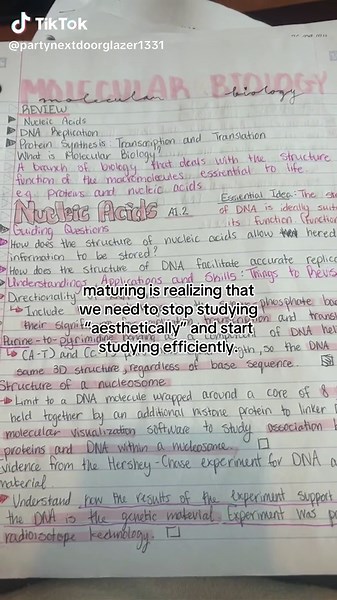 TikTok
@partynextdoorglazer1331
MOLECULAR BIOLOGY
molecular biology
REVIEW
Nucleic Acids
DNA Replication
Protein Synthesis Transcription and Translation
What is Molecular Biology?
A branch of biology that deals with the structure
function of the macromolecules essential to life
e.g. Proteins and nucleic acids
Essential Idea: The
Nucleic Acids A1.2
of DNA is ideally
its function
Guiding Questions
How does the structure of nucleic acids allow
information to be stored?
How does the structure of DNA facilitate accurate
Understandings, Applications and Skills: Things to
maturing is realizing that
we need to stop studying
"aesthetically" and start
studying efficiently.
Directionality
Include phosphate
their and
Purine-to-pyrimidine of DNA
same 3D structure, regardless of base sequence.
Structure of a nucleosome.
Limit to a DNA molecule wrapped around a core of 8
held together by an additional histone protein to linker
molecular visualization software to study association
proteins and DNA within a nucleosome.
evidence from the Hershey-Chase experiment for DNA
material
Understand how the results of the experiment support
the DNA is the genetic material. Experiment was
radioisotope technology.